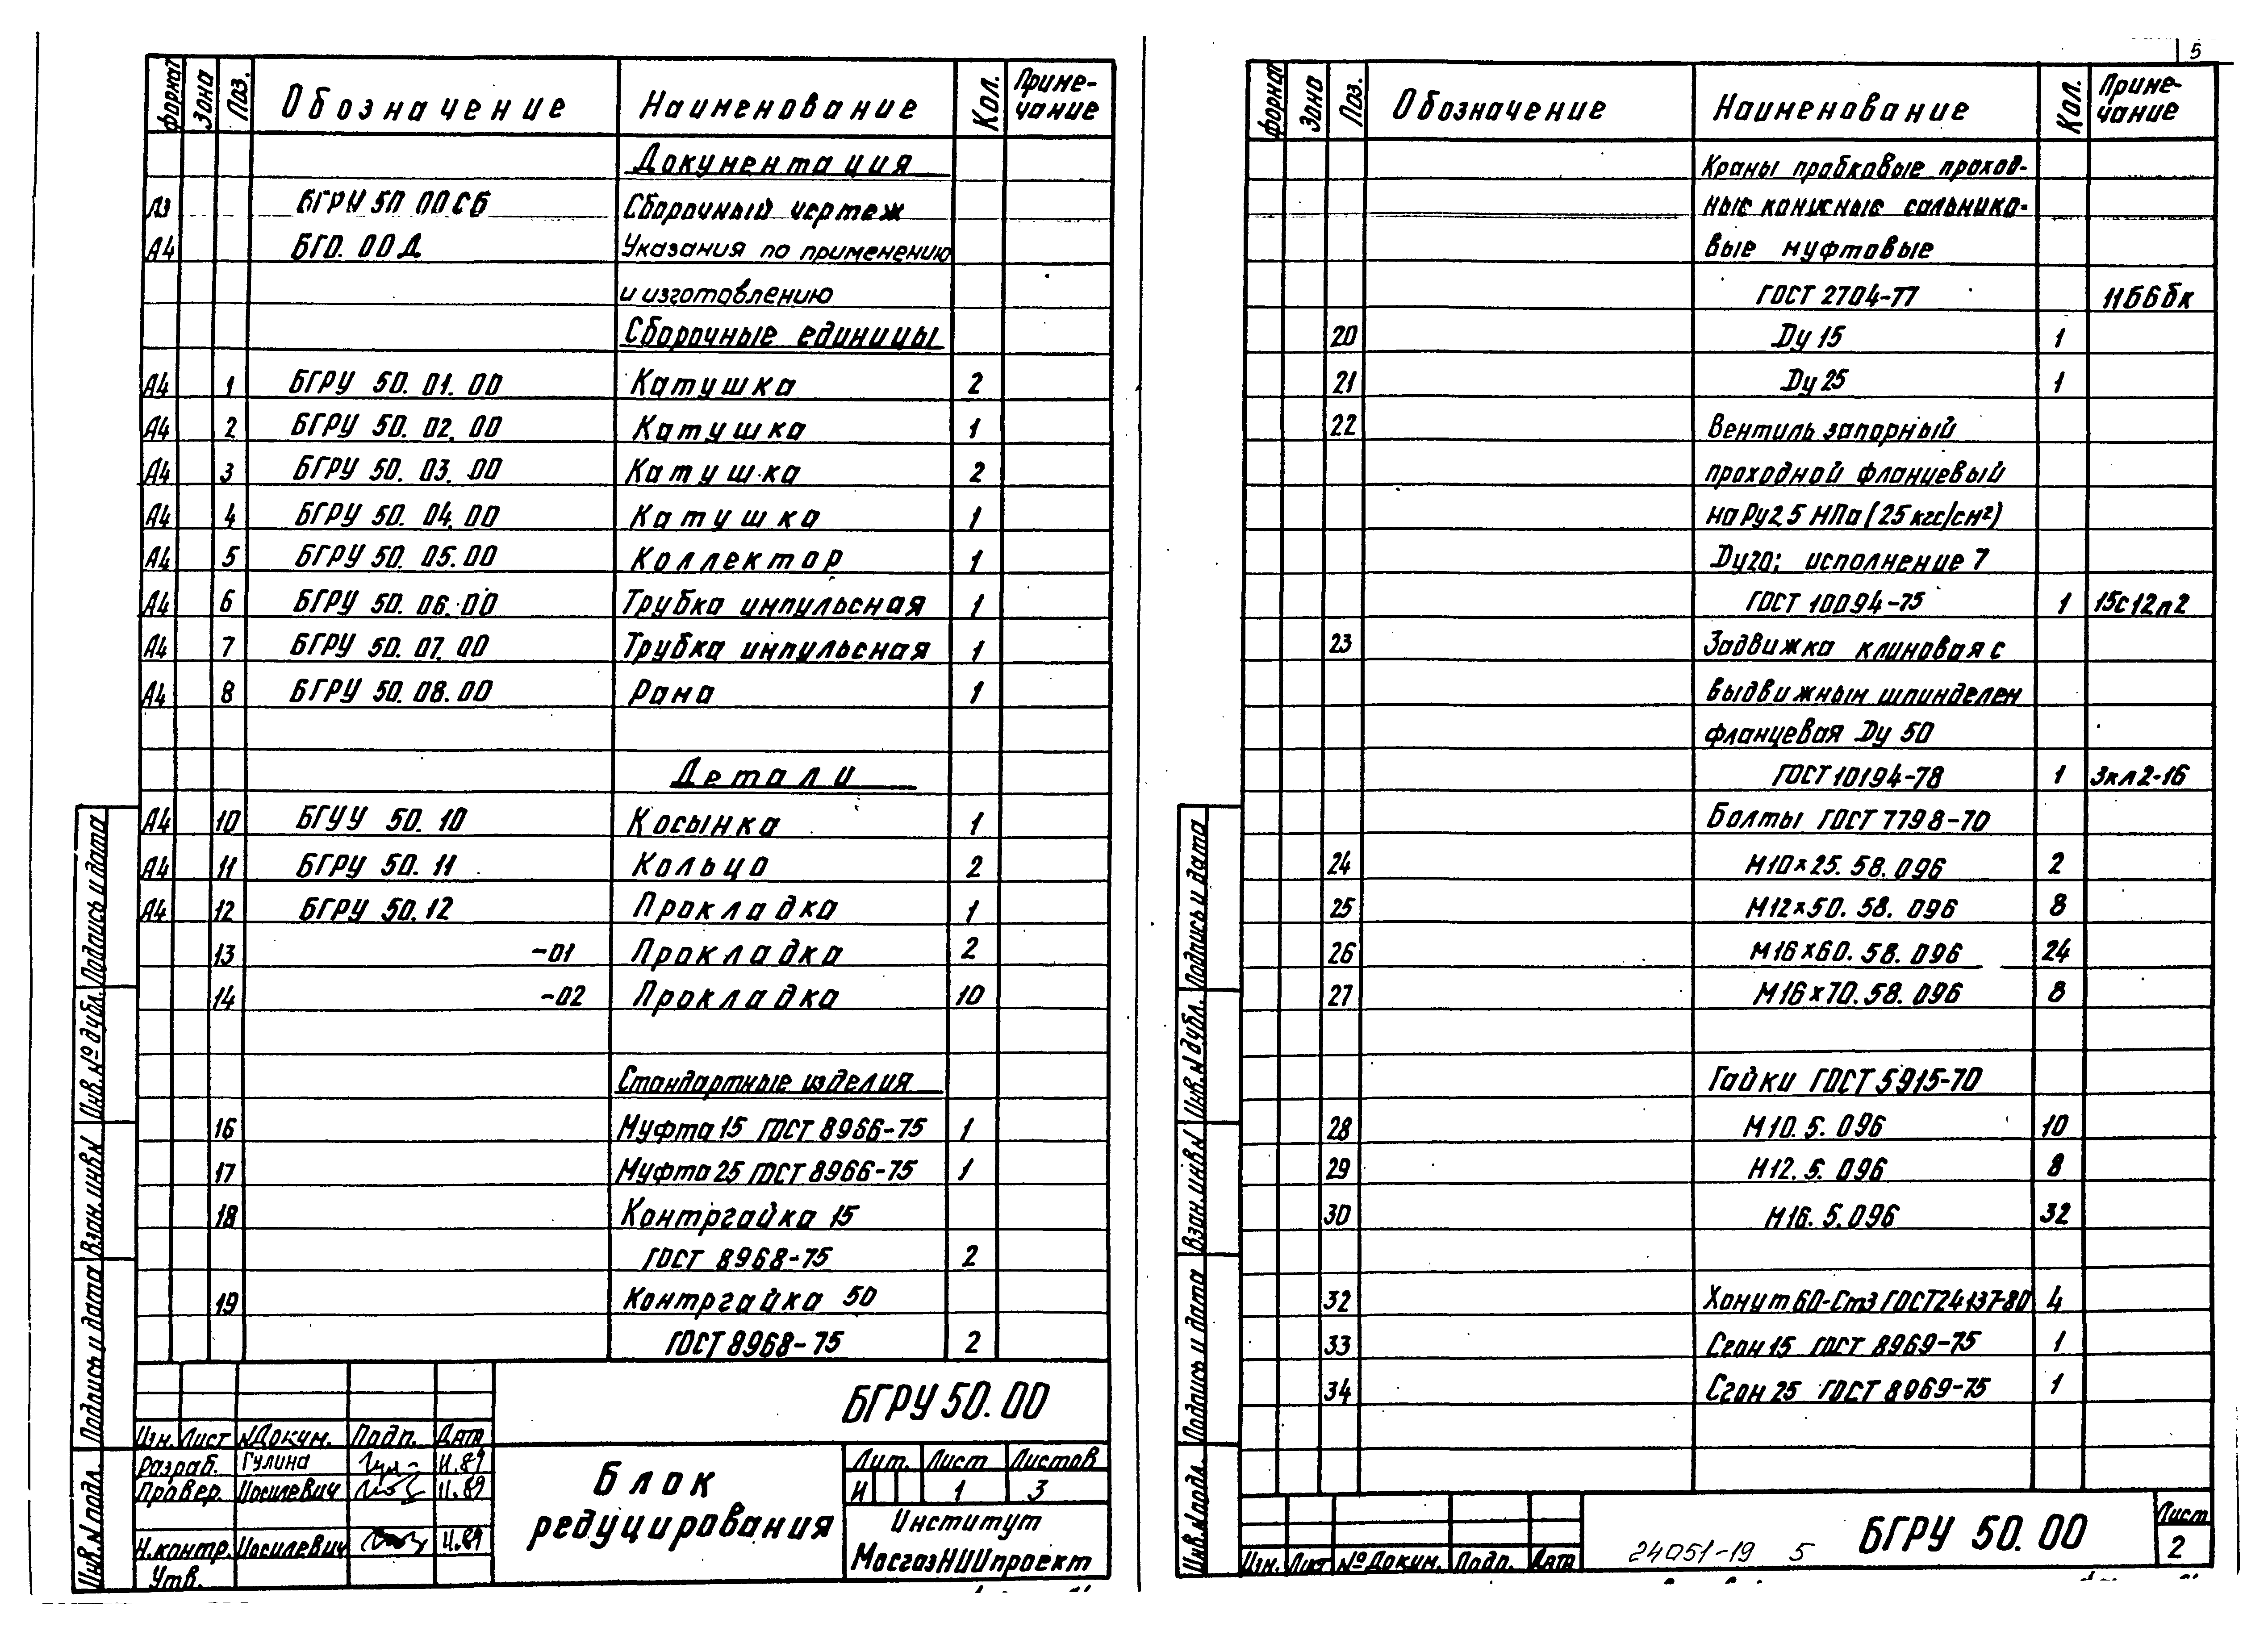 Формат Зона Поз. Обозначение Наименование Кол. Приме-
чание
Документация
А3 БГРУ 50 00 СБ Сборочный чертеж
А4 БГО. 00 Д Указания по применению
и изготовлению
Сборочные единицы
А4 1 БГРУ 50. 01. 00 Катушка 2
А4 2 БГРУ 50. 02. 00 Катушка 1
А4 3 БГРУ 50. 03. 00 Катушка 2
А4 4 БГРУ 50. 04. 00 Катушка 1
А4 5 БГРУ 50. 05. 00 Коллектор 1
А4 6 БГРУ 50. 06. 00 Трубка импульсная 1
А4 7 БГРУ 50. 07. 00 Трубка импульсная 1
А4 8 БГРУ 50. 08. 00 Рама 1
Детали
А4 10 БГУУ 50. 10 Косынка 1
А4 11 БГРУ 50. 11 Кольцо 2
А4 12 БГРУ 50. 12 Прокладка 1
13 -01 Прокладка 2
14 -02 Прокладка 10
Стандартные изделия
16 Муфта 15 ГОСТ 8966-75 1
17 Муфта 25 ГОСТ 8966-75 1
18 Контргайка 15
ГОСТ 8968-75 2
19 Контргайка 50
ГОСТ 8968-75 2
БГРУ 50. 00
Изм. Лист № Докум. Подп. Дата
Разраб. Гулина 11.89
Провер. Иосилевич 11.89
Н.контр. Иосилевич 11.89
Утв.
Блок
редуцирования
Лит. Лист Листов
И 1 3
Институт
МосгазНИИпроект
Подпись и дата
Инв. № дубл.
Взам. инв. №
Подпись и дата
Инв. № подл.
5
Формат Зона Поз. Обозначение Наименование Кол. Приме-
чание
Краны пробковые проход-
ные конусные сальнико-
вые муфтовые
ГОСТ 2704-77 11б6бк
20 Dу 15 1
21 Dу 25 1
22 Вентиль запорный
проходной фланцевый
на Ру 2,5 МПа (25 кгс/см²)
Dу 20; исполнение 7
ГОСТ 10094-75 1 15с12п2
23 Задвижка клиновая с
выдвижным шпинделем
фланцевая Dу 50
ГОСТ 10194-78 1 3кл2-16
Болты ГОСТ 7798-70
24 М10×25. 58. 096 2
25 М12×50. 58. 096 8
26 М16×60. 58. 096 24
27 М16×70. 58. 096 8
Гайки ГОСТ 5915-70
28 М10. 5. 096 10
29 М12. 5. 096 8
30 М16. 5. 096 32
32 Хомут 60-Ст3 ГОСТ 24137-80 4
33 Сгон 15 ГОСТ 8969-75 1
34 Сгон 25 ГОСТ 8969-75 1
Изм. Лист № Докум. Подп. Дата
24051-19 5
БГРУ 50. 00
Лист
2
Подпись и дата
Инв. № дубл.
Взам. инв. №
Подпись и дата
Инв. № подл.